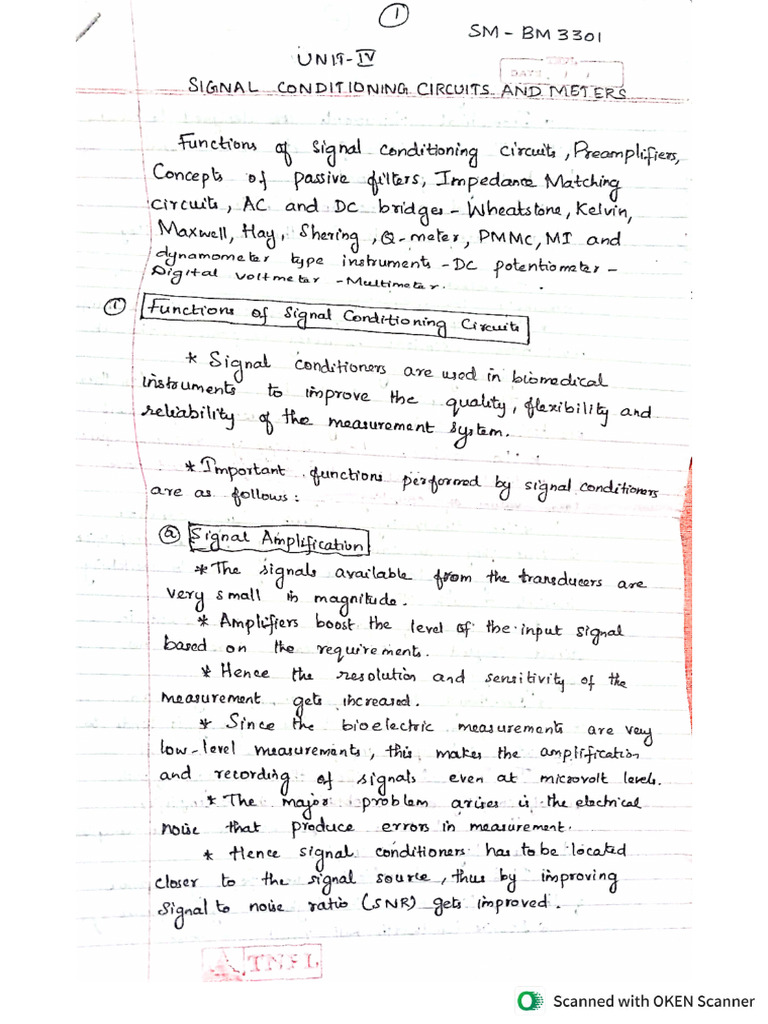 1
SM - BM 3301
UNIT-IV
DATE / /
SIGNAL CONDITIONING CIRCUITS AND METERS
Functions of signal conditioning circuits, Preamplifiers,
Concepts of passive filters, Impedance Matching
circuits, AC and DC bridges - Wheatstone, Kelvin,
Maxwell, Hay, Shering, Q-meter, PMMC, MI and
dynamometer type instruments - DC potentiometer -
Digital voltmeter - Multimeter.
① Functions of Signal Conditioning Circuits
* Signal conditioners are used in biomedical
instruments to improve the quality, flexibility and
reliability of the measurement system.
* Important functions performed by signal conditioners
are as follows:
ⓐ Signal Amplification
* The signals available from the transducers are
very small in magnitude.
* Amplifiers boost the level of the input signal
based on the requirements.
* Hence the resolution and sensitivity of the
measurement gets increased.
* Since the bioelectric measurements are very
low-level measurements, this makes the amplification
and recording of signals even at microvolt levels.
* The major problem arises is the electrical
noise that produce errors in measurement.
* Hence signal conditioners has to be located
closer to the signal source, thus by improving
signal to noise ratio (SNR) gets improved.
TNPL
Scanned with OKEN Scanner